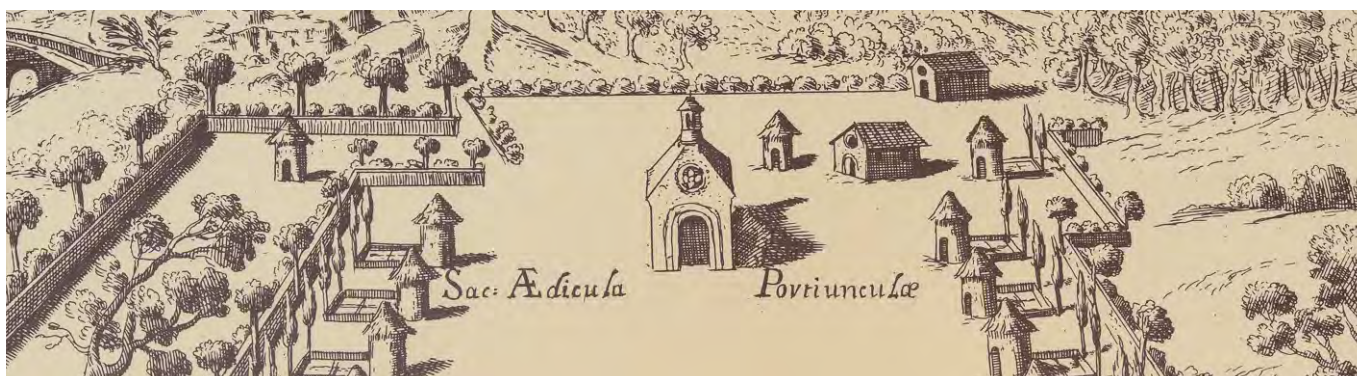 Sac: Ædicula Portiunculæ